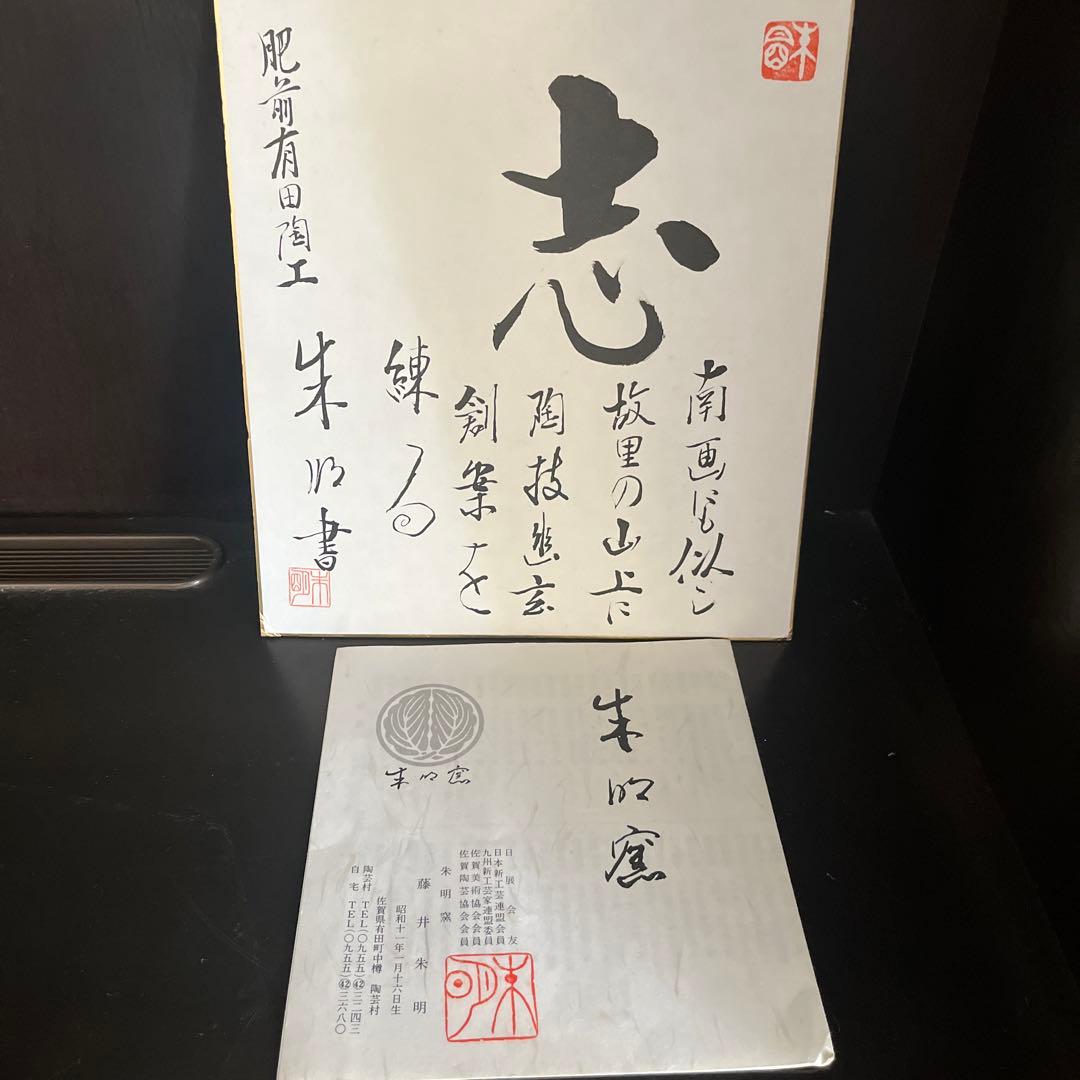 志
南画にも似し
故里の山上に
陶技進玄
創案を
練る
肥前有田陶工
朱明書
朱明
朱明窯
朱明窯
日展会友
日本新工芸連盟会員
九州新工芸家連盟委員
佐賀美術協会会員
佐賀陶芸協会会員
朱明窯
藤井朱明
昭和十一年一月十六日生
佐賀県有田町中樽 陶芸村
陶芸村 TEL(〇九五五)㊷三二四三
自宅 TEL(〇九五五)㊷三六八〇
朱明